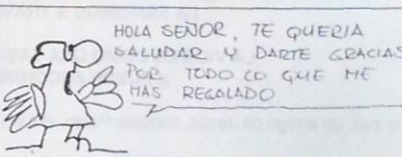 HOLA SEÑOR, TE QUERIA
SALUDAR Y DARTE GRACIAS
POR TODO LO QUE ME
HAS REGALADO